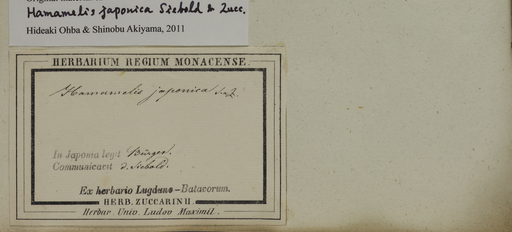 Hamamelis japonica Siebold & Zucc.
Hideaki Ohba & Shinobu Akiyama, 2011
HERBARIUM REGIUM MONACENSE.
Hamamelis japonica S. & Z.
In Japonia legit Bürger.
Communicavit d. Siebold.
Ex herbario Lugduno-Batavorum.
HERB. ZUCCARINII.
Herbar. Univ. Ludov. Maximil.